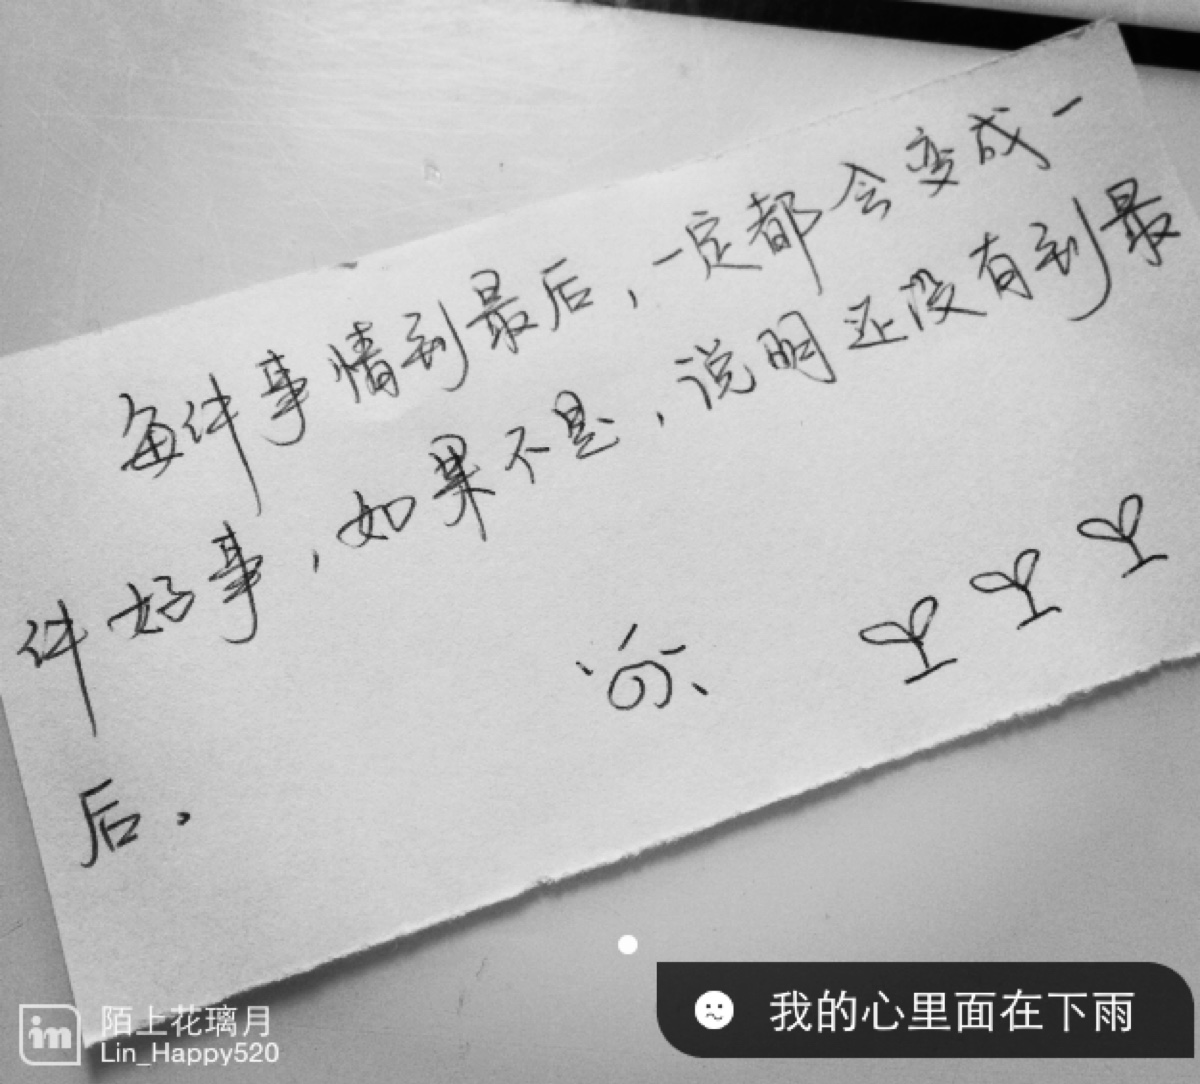 每件事情到最后，一定都会变成一
件好事，如果不是，说明还没有到最
后.
我的心里面在下雨
im 陌上花璃月
Lin_Happy520